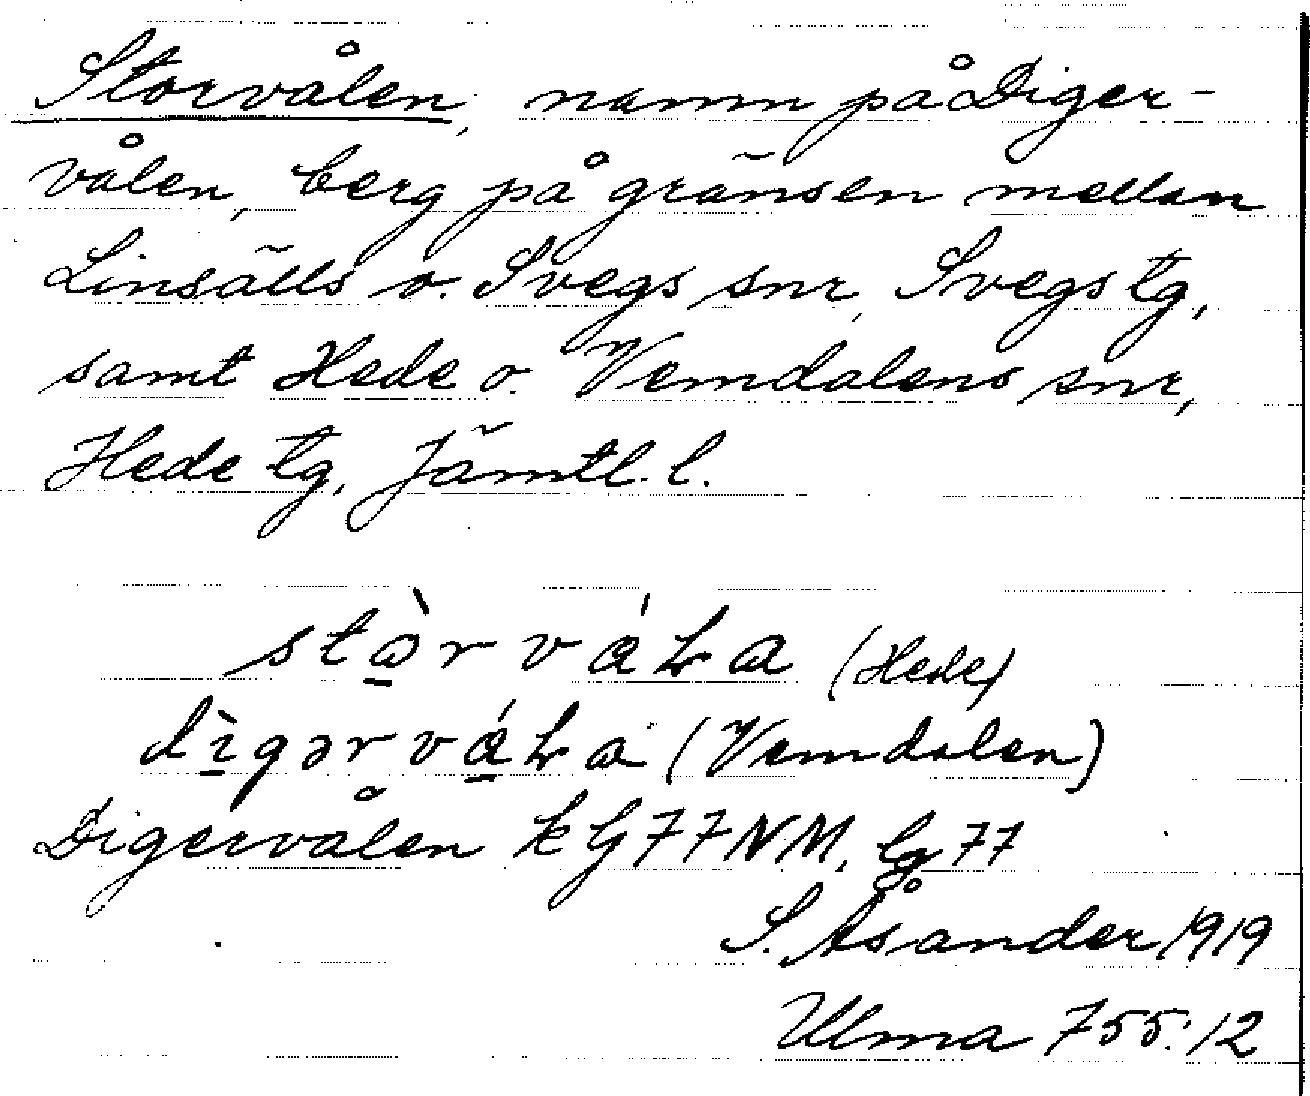 Storvålen, namn på Diger-
vålen, berg på gränsen mellan
Linsälls o. Svegs snr, Svegs tg,
samt Hede o. Vemdalens snr,
Hede tg, Jämtl. l.
(Hede)
(Vemdalen)
Digervålen k G77NM, lg 77
S. Åsander 1919
Ulma 755:12